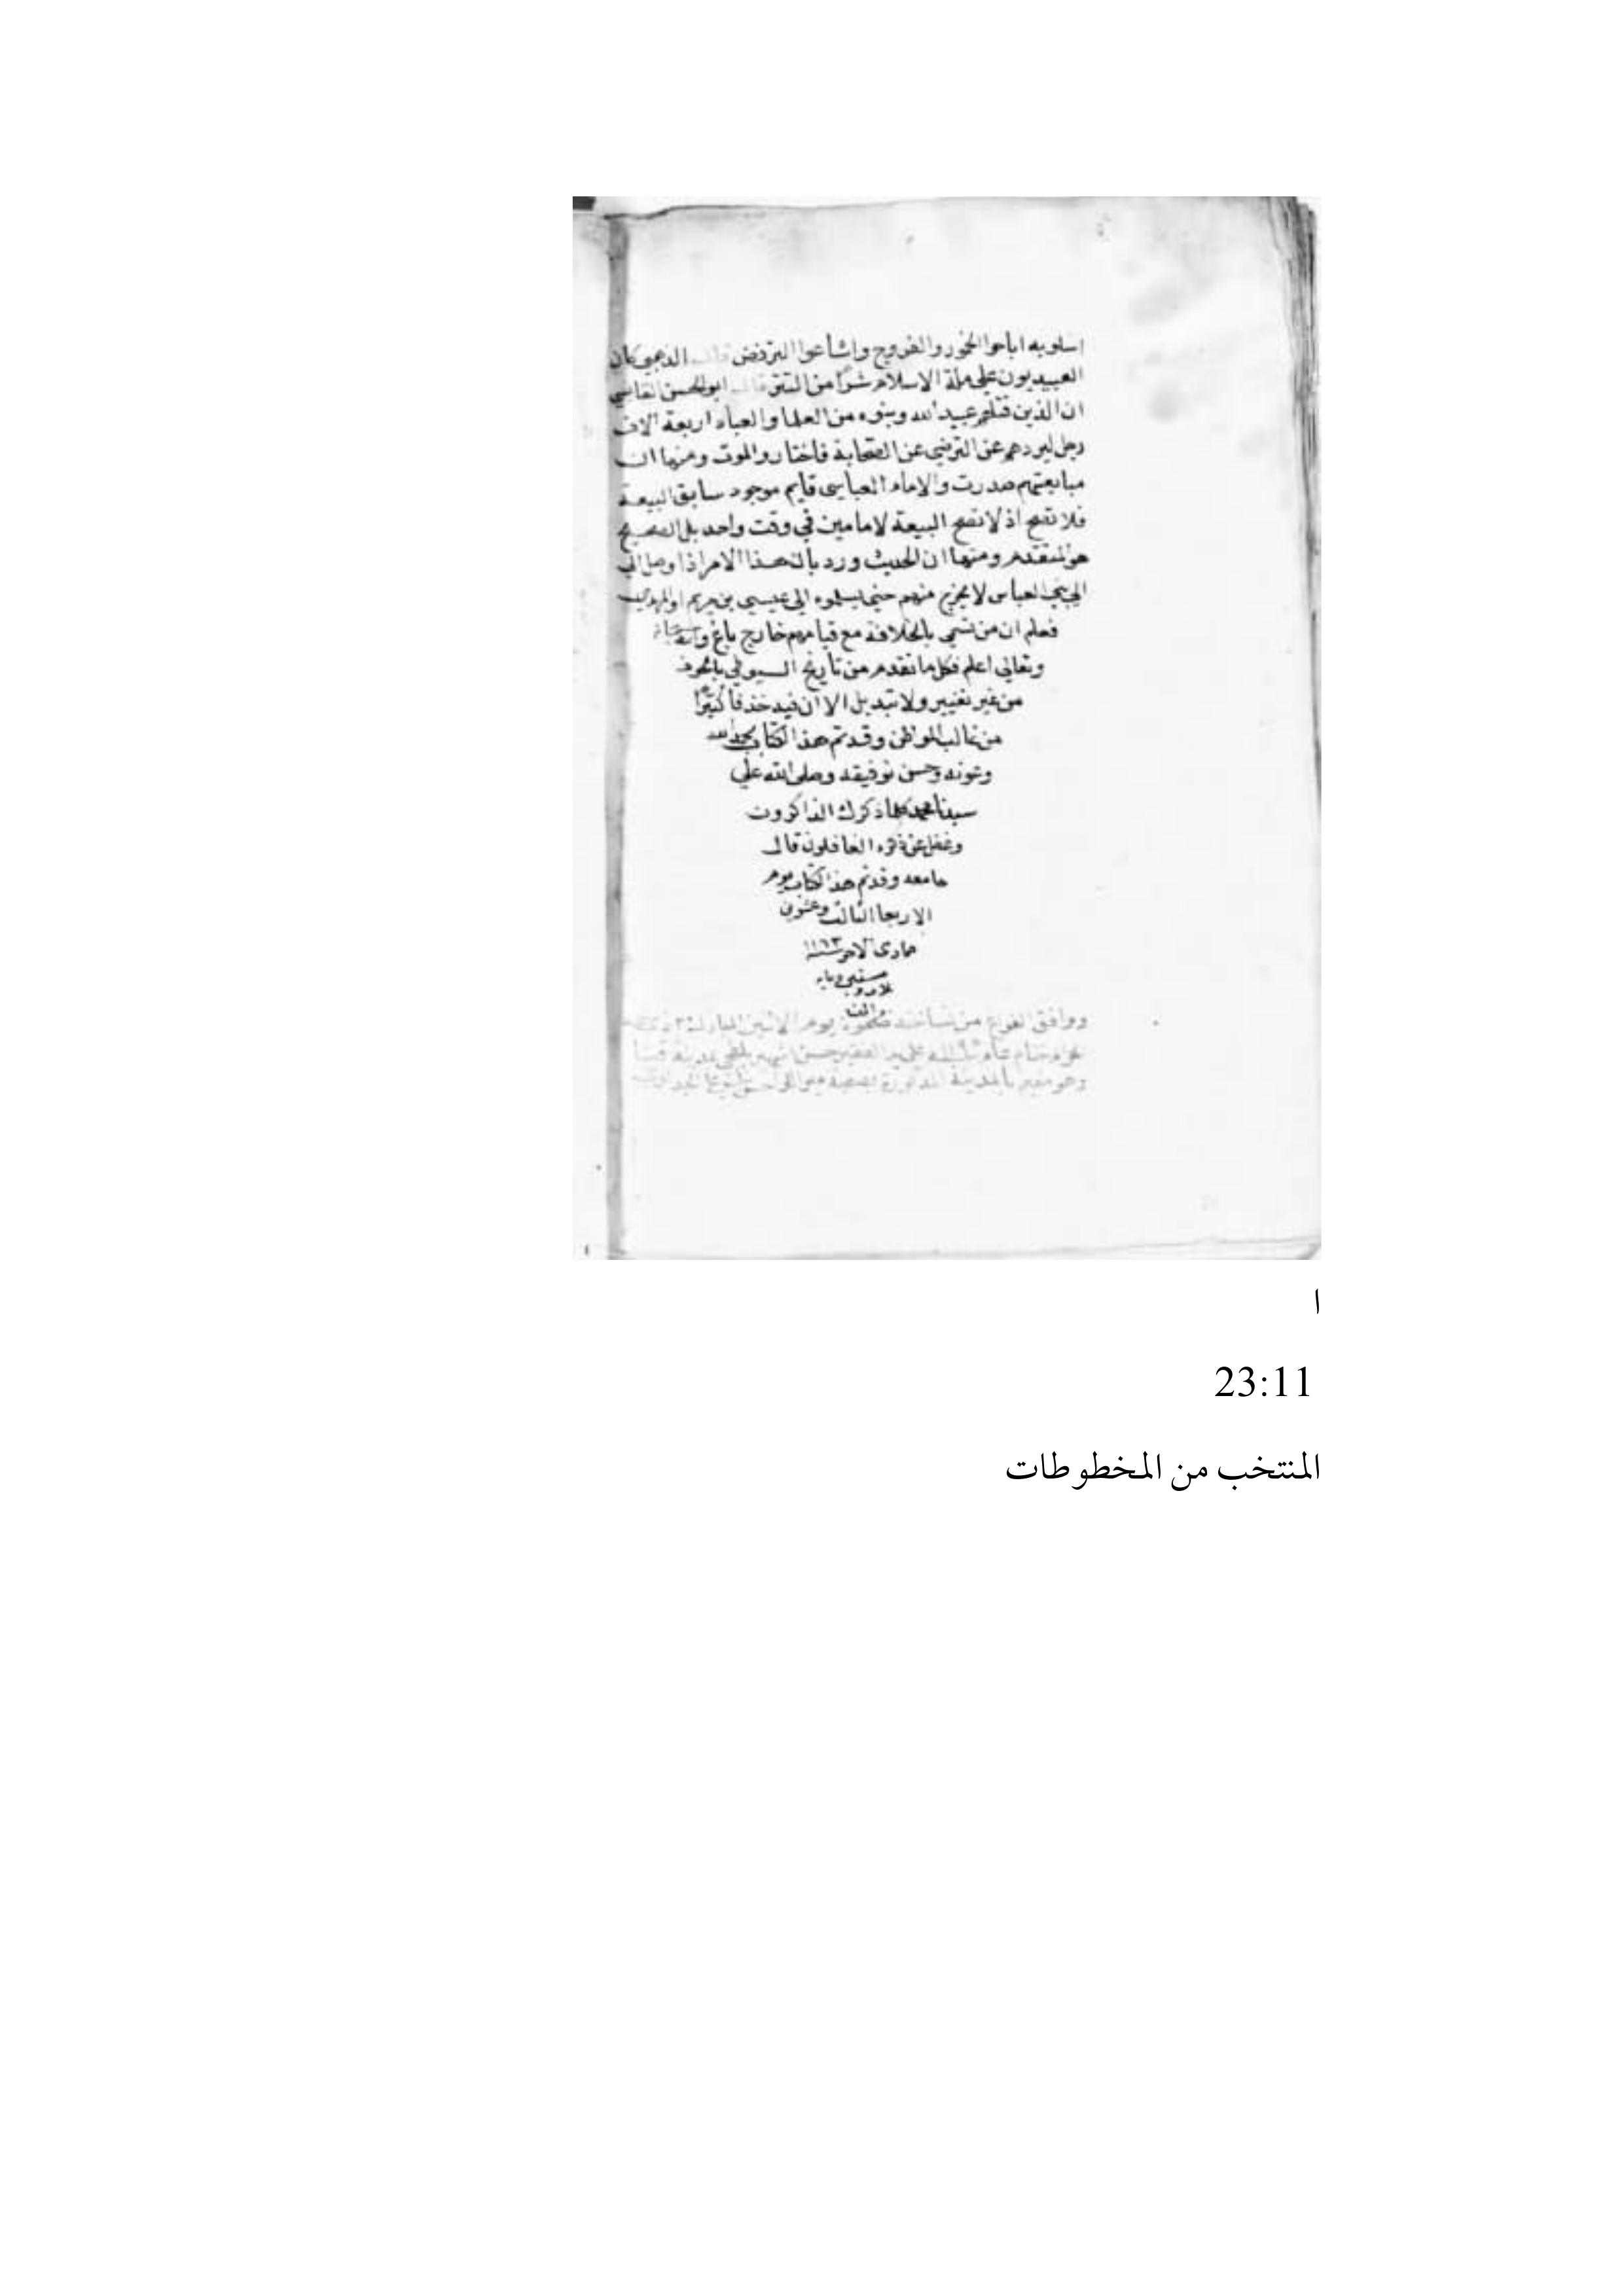 اسلوبه اباحوا الخمور والفروج واشاعوا الترفض قال الذهبي كان
العبيديون على ملة الاسلام شرا من التتر قال ابو الحسن القابسي
ان الذين قتلهم عبيد الله وبنوه من العلما والعباد اربعة الاف
رجل ليردهم عن الترضي عن الصحابة فاختاروا الموت ومنها ان
مبايعتهم صدرت والامام العباسي قايم موجود سابق البيعة
فلا تصح اذ لا تصح البيعة لامامين في وقت واحد بل الصحيح
هو المتقدم ومنها ان الحديث ورد بان هذا الامر اذا وصل الى
الى بني العباس لا يخرج منهم حتى يسلموه الى عيسى بن مريم او المهدي
فعلم ان من تسمي بالخلافة مع قيامهم خارج باغ والله
وتعالى اعلم فكل ما تقدم من تاريخ السيوطي بالحرف
من غير تغيير ولا تبديل الا ان فيه حذفا كثيرا
من غالب المواطن وقد تم هذا الكتاب بحمد الله
وعونه وحسن توفيقه وصلى الله على
سيدنا محمد كلما ذكرك الذاكرون
وغفل عن ذكره الغافلون قال
جامعه وقد تم هذا الكتاب يوم
الاربعا الثالث وعشرين
جمادى الاخر سنة ١١٦٣
ووافق الفراغ من يوم الاثنين المبارك
على يد الفقير حسن
وهو مقيم بالمدينة المذكورة
ا
23:11
المنتخب من المخطوطات